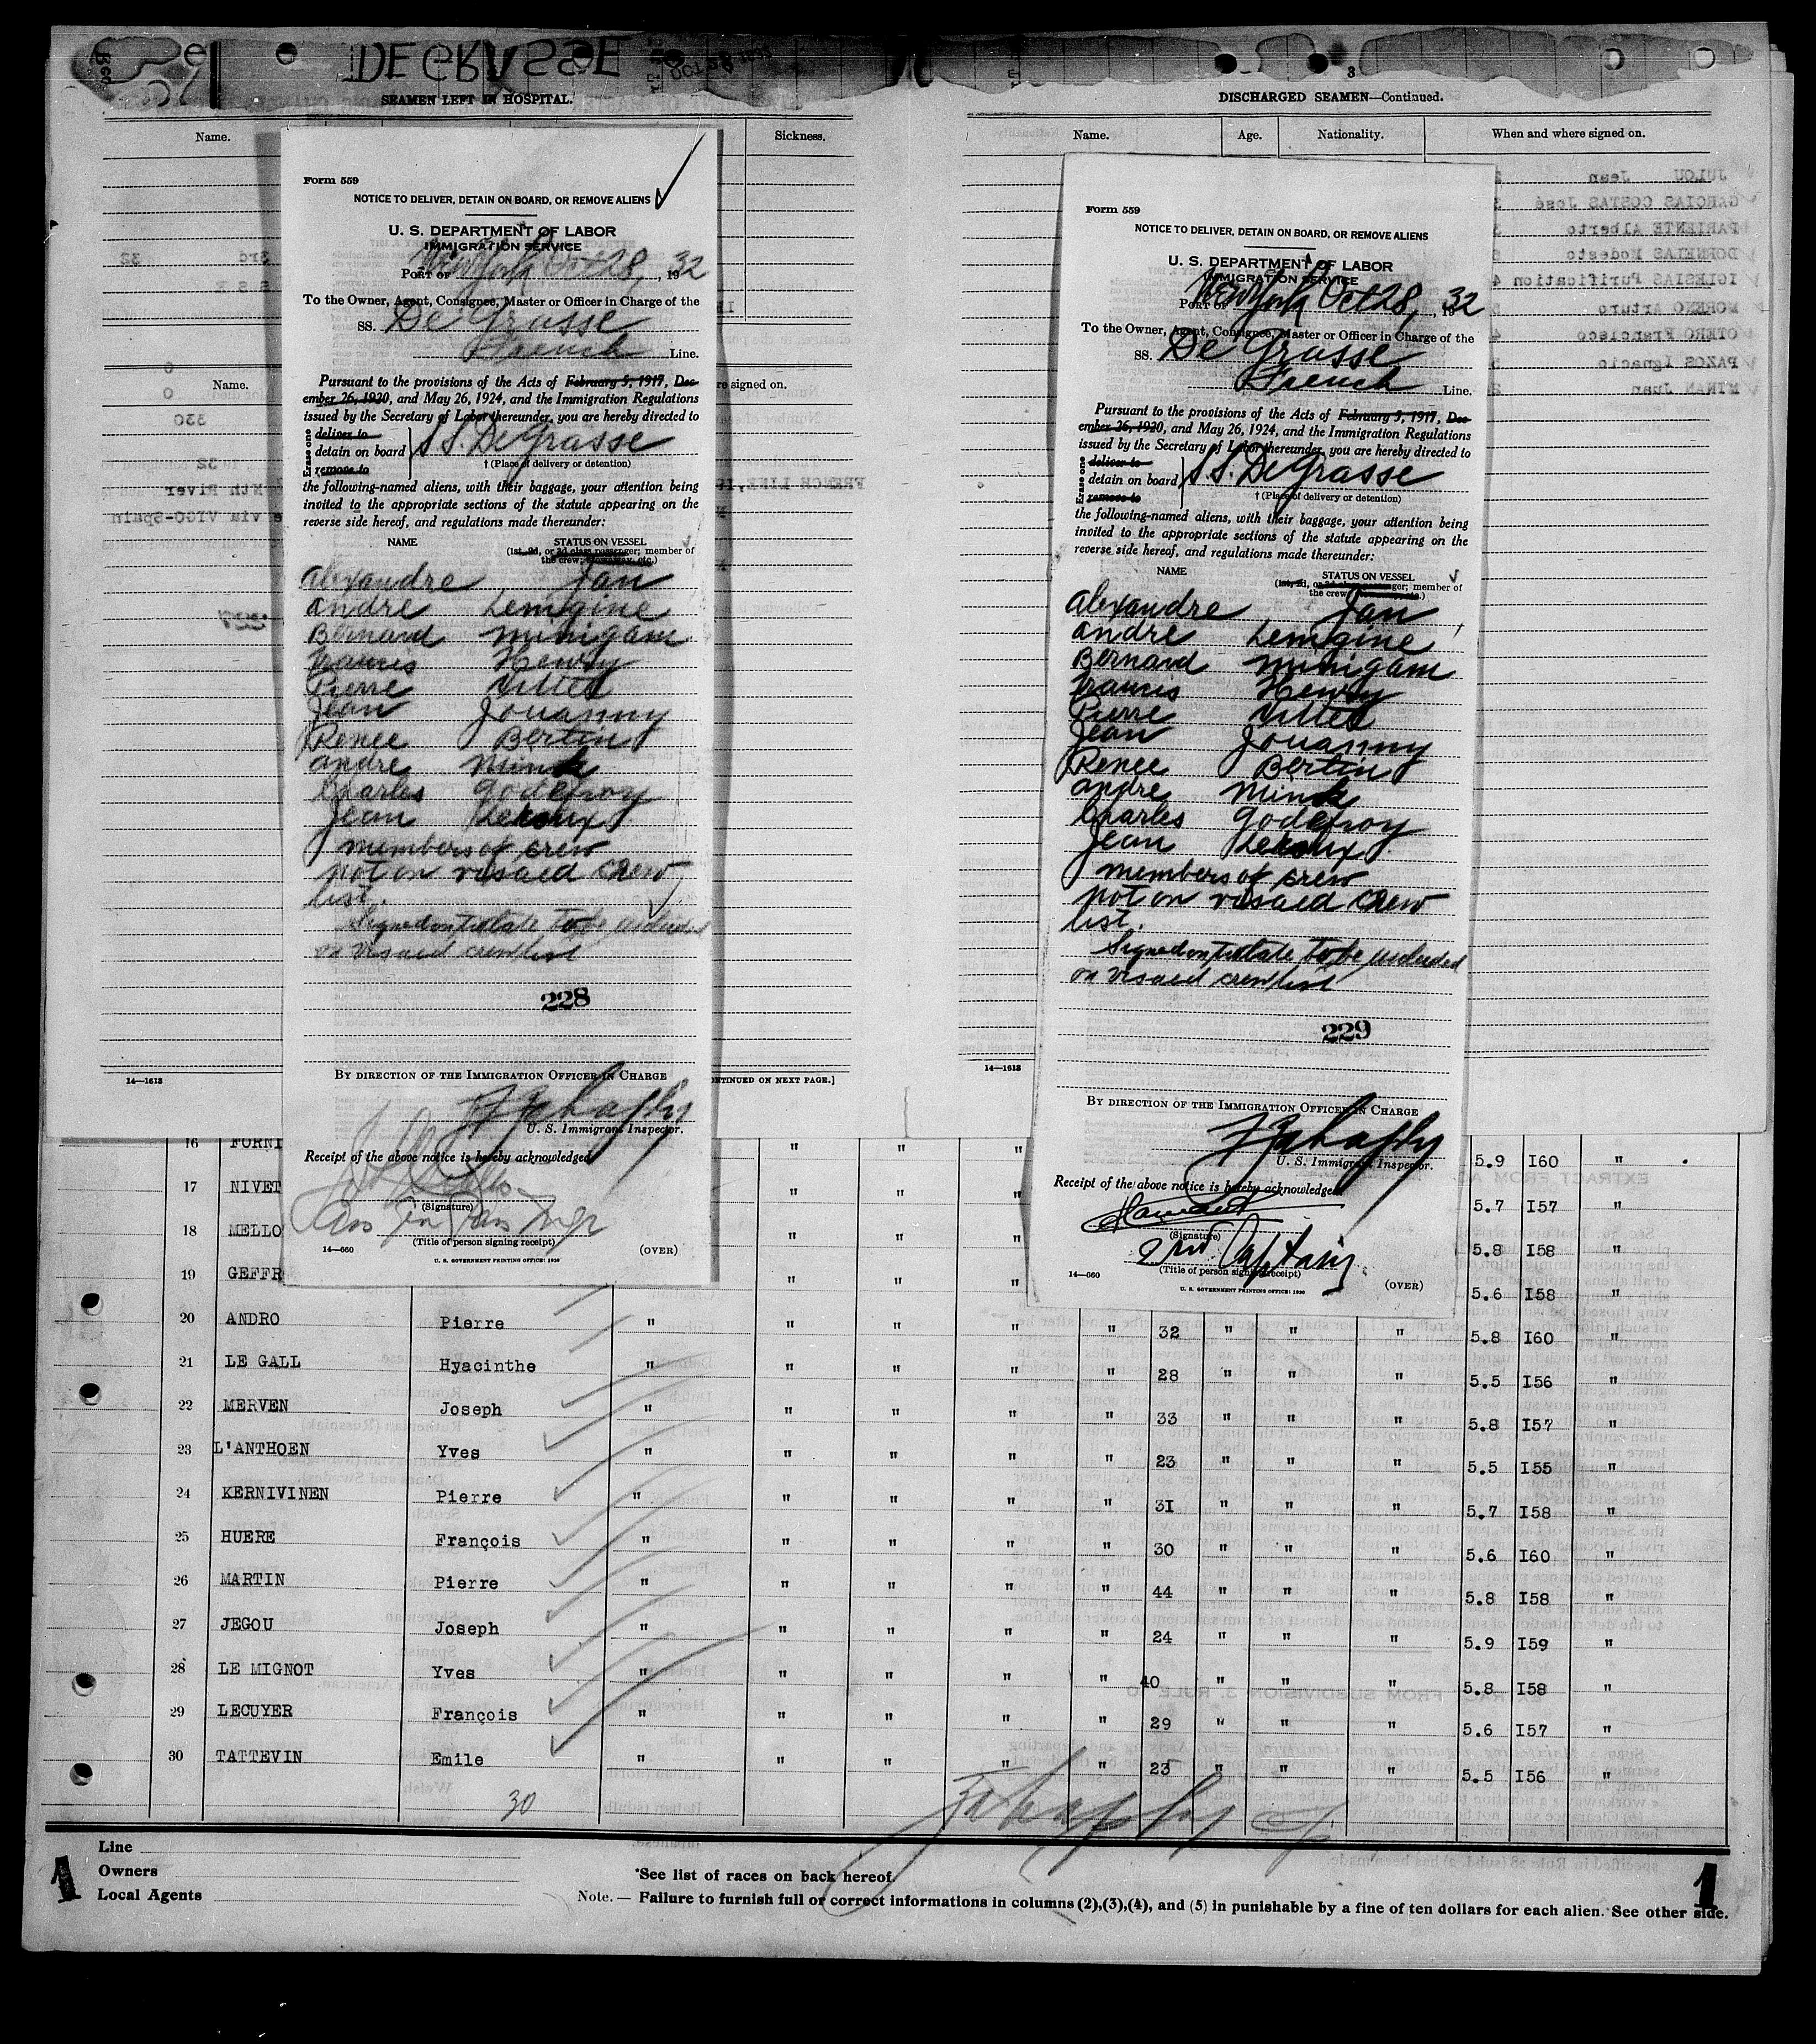 DEGRASSE
SEAMEN LEFT IN HOSPITAL.
Name.
Sickness.
Name.
re signed on.
14—1613
NTINUED ON NEXT PAGE.]
3
DISCHARGED SEAMEN—Continued.
Name. Age. Nationality. When and where signed on.
JULOU Jean
GARCIAS COSTAS José
PARIENTE Alberto
DORNEIAS Modesto
IGLESIAS Purification 4
MORENO Arturo
OTERO Francisco
PAZOS Ignacio
MINAN Juan
14—1613
Form 559
NOTICE TO DELIVER, DETAIN ON BOARD, OR REMOVE ALIENS
U. S. DEPARTMENT OF LABOR
IMMIGRATION SERVICE
PORT OF New York Oct 28, 1932
To the Owner, Agent, Consignee, Master or Officer in Charge of the
SS. De Grasse
French Line.
Pursuant to the provisions of the Acts of February 5, 1917, Dec-
ember 26, 1920, and May 26, 1924, and the Immigration Regulations
issued by the Secretary of Labor thereunder, you are hereby directed to
Erase one
deliver to
detain on board
remove to
S S. De Grasse
† (Place of delivery or detention)
the following-named aliens, with their baggage, your attention being
invited to the appropriate sections of the statute appearing on the
reverse side hereof, and regulations made thereunder:
NAME STATUS ON VESSEL
(1st, 2d, or 3d class passenger; member of
the crew, etc.)
Alexandre Jan
Andre Lemigine
Bernard Minigam
Francis Henry
Pierre Villet
Jean Jouanny
Renee Bertin
Andre Mink
Charles Godefroy
Jean Leroux
members of crew
not on visaed crew
list.
Signed on too late to be included
on visaed crew list
228
BY DIRECTION OF THE IMMIGRATION OFFICER IN CHARGE
U. S. Immigrant Inspector.
Receipt of the above notice is hereby acknowledged
(Signature)
(Title of person signing receipt)
14—660
(OVER)
U. S. GOVERNMENT PRINTING OFFICE: 1930
Form 559
NOTICE TO DELIVER, DETAIN ON BOARD, OR REMOVE ALIENS
U. S. DEPARTMENT OF LABOR
IMMIGRATION SERVICE
PORT OF New York Oct 28, 1932
To the Owner, Agent, Consignee, Master or Officer in Charge of the
SS. De Grasse
French Line.
Pursuant to the provisions of the Acts of February 5, 1917, Dec-
ember 26, 1920, and May 26, 1924, and the Immigration Regulations
issued by the Secretary of Labor thereunder, you are hereby directed to
Erase one
deliver to
detain on board
remove to
S S. De Grasse
† (Place of delivery or detention)
the following-named aliens, with their baggage, your attention being
invited to the appropriate sections of the statute appearing on the
reverse side hereof, and regulations made thereunder:
NAME STATUS ON VESSEL
(1st, 2d, or 3d class passenger; member of
the crew, etc.)
Alexandre Jan
Andre Lemigine
Bernard Minigam
Francis Henry
Pierre Villet
Jean Jouanny
Renee Bertin
Andre Mink
Charles Godefroy
Jean Leroux
members of crew
not on visaed crew
list.
Signed on too late to be included
on visaed crew list
229
BY DIRECTION OF THE IMMIGRATION OFFICER IN CHARGE
U. S. Immigrant Inspector.
Receipt of the above notice is hereby acknowledged
(Signature)
2nd Captain
(Title of person signing receipt)
14—660
(OVER)
U. S. GOVERNMENT PRINTING OFFICE: 1930
16 FORNI " " " 5.9 I60 "
17 NIVET " " " 5.7 I57 "
18 MELLO " " 5.8 I58 "
19 GEFFR " " " 5.6 I58 "
20 ANDRO Pierre " " " " " 32 " " " 5.8 I60 "
21 LE GALL Hyacinthe " " " " " 28 " " " 5.5 I56 "
22 MERVEN Joseph " " " " " 33 " " " 5.8 I57 "
23 L'ANTHOEN Yves " " " " " 23 " " " 5.5 I55 "
24 KERNIVINEN Pierre " " " " " 31 " " " 5.7 I58 "
25 HUERE François " " " " " 30 " " " 5.6 I60 "
26 MARTIN Pierre " " " " " 44 " " " 5.8 I58 "
27 JEGOU Joseph " " " " " 24 " " " 5.9 I59 "
28 LE MIGNOT Yves " " " " " 40 " " " 5.8 I58 "
29 LECUYER François " " " " " 29 " " " 5.6 I57 "
30 TATTEVIN Emile " " " " " 25 " " " 5.5 I56 "
30
Line
Owners
Local Agents
1
*See list of races on back hereof.
Note. — Failure to furnish full or correct informations in columns (2),(3),(4), and (5) in punishable by a fine of ten dollars for each alien. See other side.
1